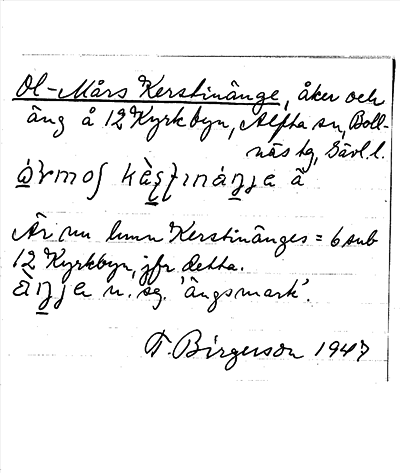 Ol-Mårs Kerstinänge, åker och
äng å 12 Kyrkbyn, Alfta sn, Boll-
näs tg, Gävl. l.
Är nu hmn Kerstinänges = 6 sub
12 Kyrkbyn, jfr detta.
n. sg. 'ängsmark'.
F. Birgerson 1947